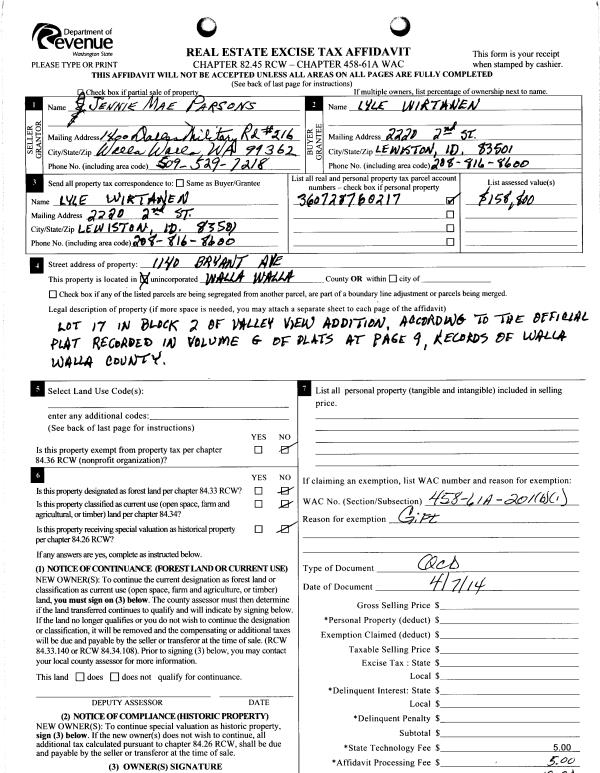 Department of
Revenue
Washington State
PLEASE TYPE OR PRINT
REAL ESTATE EXCISE TAX AFFIDAVIT
CHAPTER 82.45 RCW – CHAPTER 458-61A WAC
This form is your receipt
when stamped by cashier.
THIS AFFIDAVIT WILL NOT BE ACCEPTED UNLESS ALL AREAS ON ALL PAGES ARE FULLY COMPLETED
(See back of last page for instructions)
Check box if partial sale of property
If multiple owners, list percentage of ownership next to name.
1
SELLER
GRANTOR
Name JENNIE MAE PARSONS
Mailing Address 1400 Dalles Military Rd #216
City/State/Zip Walla Walla, WA 99362
Phone No. (including area code) 509-529-7218
2
BUYER
GRANTEE
Name LYLE WIRTANEN
Mailing Address 2220 2nd ST.
City/State/Zip LEWISTON, ID. 83501
Phone No. (including area code) 208-816-8600
3
Send all property tax correspondence to: Same as Buyer/Grantee
Name LYLE WIRTANEN
Mailing Address 2220 2nd ST.
City/State/Zip LEWISTON, ID. 83501
Phone No. (including area code) 208-816-8600
List all real and personal property tax parcel account
numbers – check box if personal property
360728760217
List assessed value(s)
$158,800
4
Street address of property: 1140 BRYANT AVE
This property is located in unincorporated WALLA WALLA County OR within city of
Check box if any of the listed parcels are being segregated from another parcel, are part of a boundary line adjustment or parcels being merged.
Legal description of property (if more space is needed, you may attach a separate sheet to each page of the affidavit)
LOT 17 IN BLOCK 2 OF VALLEY VIEW ADDITION, ACCORDING TO THE OFFICIAL
PLAT RECORDED IN VOLUME G OF PLATS AT PAGE 9, RECORDS OF WALLA
WALLA COUNTY.
5
Select Land Use Code(s):
enter any additional codes:
(See back of last page for instructions)
YES NO
Is this property exempt from property tax per chapter
84.36 RCW (nonprofit organization)?
6
YES NO
Is this property designated as forest land per chapter 84.33 RCW?
Is this property classified as current use (open space, farm and
agricultural, or timber) land per chapter 84.34?
Is this property receiving special valuation as historical property
per chapter 84.26 RCW?
If any answers are yes, complete as instructed below.
(1) NOTICE OF CONTINUANCE (FOREST LAND OR CURRENT USE)
NEW OWNER(S): To continue the current designation as forest land or
classification as current use (open space, farm and agriculture, or timber)
land, you must sign on (3) below. The county assessor must then determine
if the land transferred continues to qualify and will indicate by signing below.
If the land no longer qualifies or you do not wish to continue the designation
or classification, it will be removed and the compensating or additional taxes
will be due and payable by the seller or transferor at the time of sale. (RCW
84.33.140 or RCW 84.34.108). Prior to signing (3) below, you may contact
your local county assessor for more information.
This land does does not qualify for continuance.
DEPUTY ASSESSOR DATE
(2) NOTICE OF COMPLIANCE (HISTORIC PROPERTY)
NEW OWNER(S): To continue special valuation as historic property,
sign (3) below. If the new owner(s) does not wish to continue, all
additional tax calculated pursuant to chapter 84.26 RCW, shall be due
and payable by the seller or transferor at the time of sale.
(3) OWNER(S) SIGNATURE
7
List all personal property (tangible and intangible) included in selling
price.
If claiming an exemption, list WAC number and reason for exemption:
WAC No. (Section/Subsection) 458-61A-201(b)(1)
Reason for exemption Gift
Type of Document QCD
Date of Document 4/7/14
Gross Selling Price $
*Personal Property (deduct) $
Exemption Claimed (deduct) $
Taxable Selling Price $
Excise Tax : State $
Local $
*Delinquent Interest: State $
Local $
*Delinquent Penalty $
Subtotal $
*State Technology Fee $ 5.00
*Affidavit Processing Fee $ 5.00